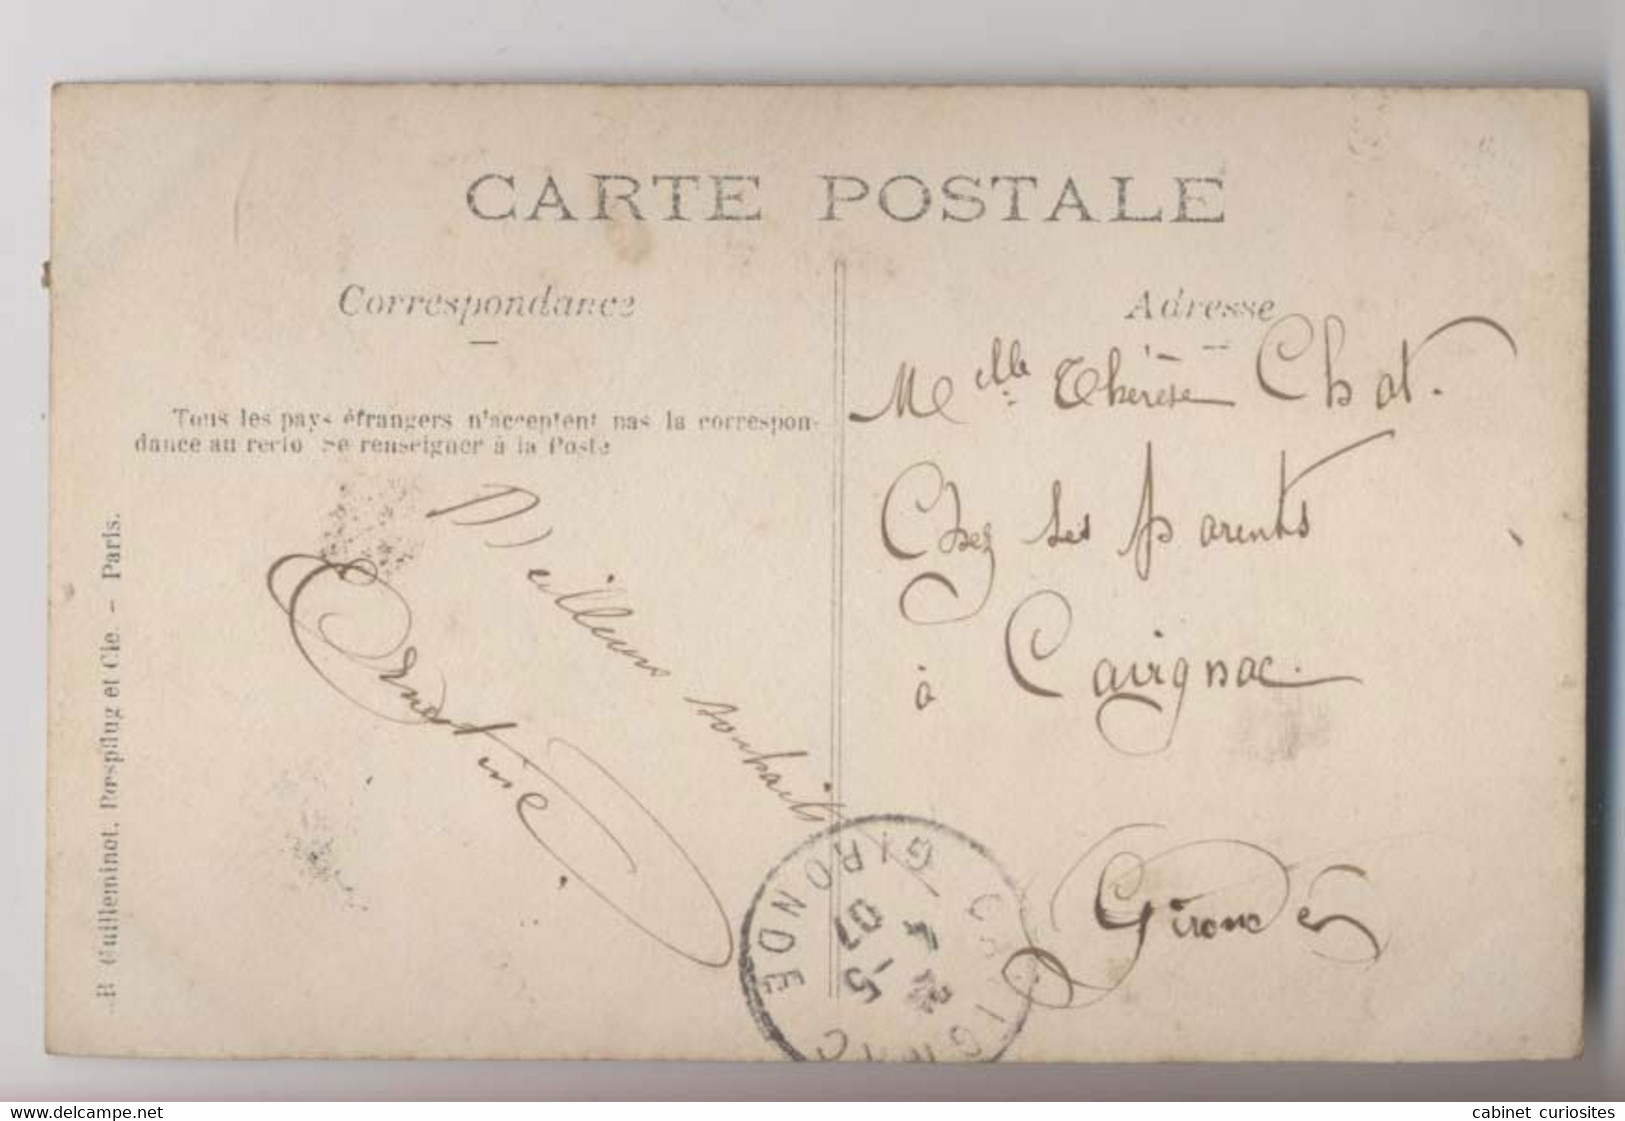 CARTE POSTALE
Correspondance
Adresse
Tous les pays étrangers n'acceptent pas la correspon-
dance au recto Se renseigner à la Poste
R. Guilleminot, Bœspflug et Cie. - Paris.
Meilleurs souhaits
Ernestine
Melle Thérèse Chat.
Chez ses parents
à Cavignac.
Gironde
CAVIGNAC
GIRONDE
5
07
www.delcampe.net
cabinet_curiosites